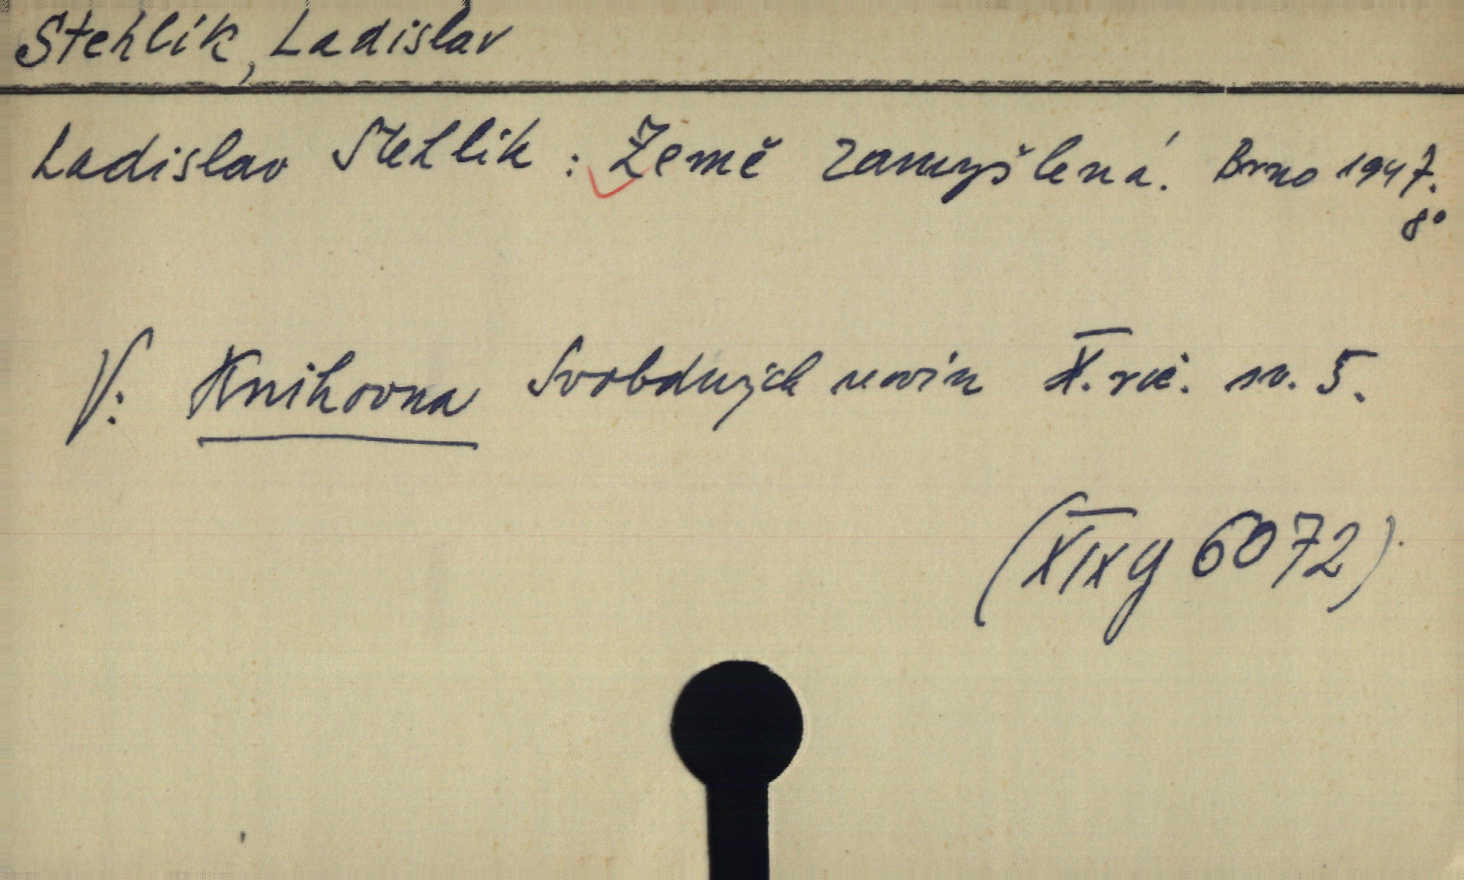 Stehlík, Ladislav
Ladislav Stehlík: Země zamyšlená. Brno 1947.
8°
V: Knihovna Svobodných novin X. roč. sv. 5.
(XIX g 6072).